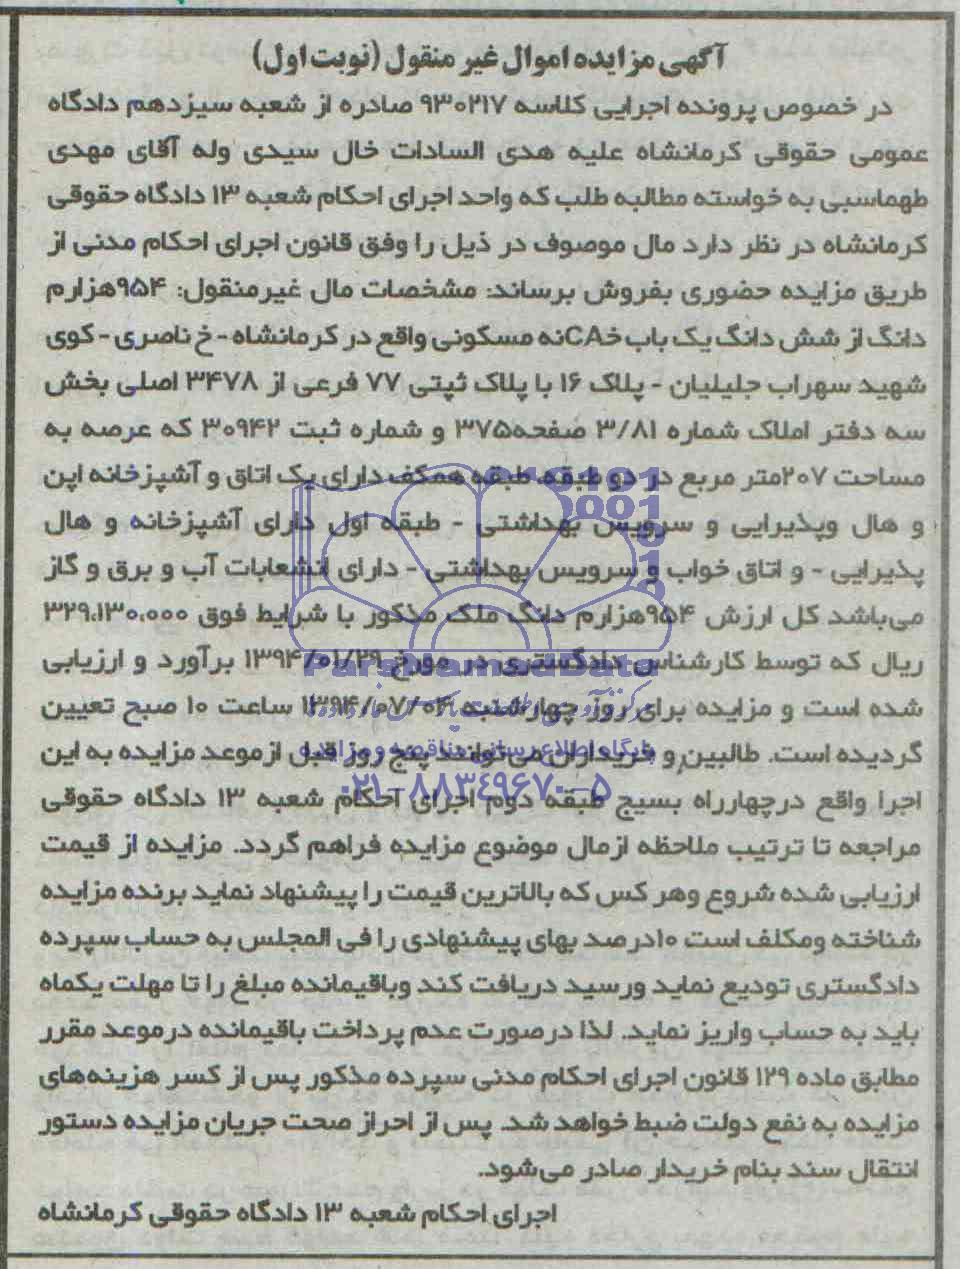 آگهی مزایده اموال غیر منقول (نوبت اول)
در خصوص پرونده اجرایی کلاسه ۹۳۰۲۱۷ صادره از شعبه سیزدهم دادگاه
عمومی حقوقی کرمانشاه علیه هدی السادات خال سیدی وله آقای مهدی
طهماسبی به خواسته مطالبه طلب که واحد اجرای احکام شعبه ۱۳ دادگاه حقوقی
کرمانشاه در نظر دارد مال موصوف در ذیل را وفق قانون اجرای احکام مدنی از
طریق مزایده حضوری بفروش برساند: مشخصات مال غیرمنقول: ۹۵۴هزارم
دانگ از شش دانگ یک باب خCAنه مسکونی واقع در کرمانشاه - خ ناصری - کوی
شهید سهراب جلیلیان - پلاک ۱۶ با پلاک ثبتی ۷۷ فرعی از ۳۴۷۸ اصلی بخش
سه دفتر املاک شماره ۳/۸۱ صفحه۳۷۵ و شماره ثبت ۳۰۹۴۲ که عرصه به
مساحت ۲۰۷متر مربع در دو طبقه، طبقه همکف دارای یک اتاق و آشپزخانه اپن
و هال وپذیرایی و سرویس بهداشتی - طبقه اول دارای آشپزخانه و هال
پذیرایی - و اتاق خواب و سرویس بهداشتی - دارای انشعابات آب و برق و گاز
می‌باشد کل ارزش ۹۵۴هزارم دانگ ملک مذکور با شرایط فوق ۳۲۹،۱۳۰،۰۰۰
ریال که توسط کارشناس دادگستری در مورخ ۱۳۹۴/۰۱/۲۹ برآورد و ارزیابی
شده است و مزایده برای روز چهارشنبه ۱۳۹۴/۰۷/۰۴ ساعت ۱۰ صبح تعیین
گردیده است. طالبین و خریداران می‌توانند پنج روز قبل ازموعد مزایده به این
اجرا واقع درچهارراه بسیج طبقه دوم اجرای احکام شعبه ۱۳ دادگاه حقوقی
مراجعه تا ترتیب ملاحظه ازمال موضوع مزایده فراهم گردد. مزایده از قیمت
ارزیابی شده شروع وهر کس که بالاترین قیمت را پیشنهاد نماید برنده مزایده
شناخته ومکلف است ۱۰درصد بهای پیشنهادی را فی المجلس به حساب سپرده
دادگستری تودیع نماید ورسید دریافت کند وباقیمانده مبلغ را تا مهلت یکماه
باید به حساب واریز نماید. لذا درصورت عدم پرداخت باقیمانده درموعد مقرر
مطابق ماده ۱۲۹ قانون اجرای احکام مدنی سپرده مذکور پس از کسر هزینه‌های
مزایده به نفع دولت ضبط خواهد شد. پس از احراز صحت جریان مزایده دستور
انتقال سند بنام خریدار صادر می‌شود.
اجرای احکام شعبه ۱۳ دادگاه حقوقی کرمانشاه
ParsNamadData
پایگاه اطلاع رسانی مناقصه و مزایده
۰۲۱-۸۸۳۴۹۶۷۰-۵